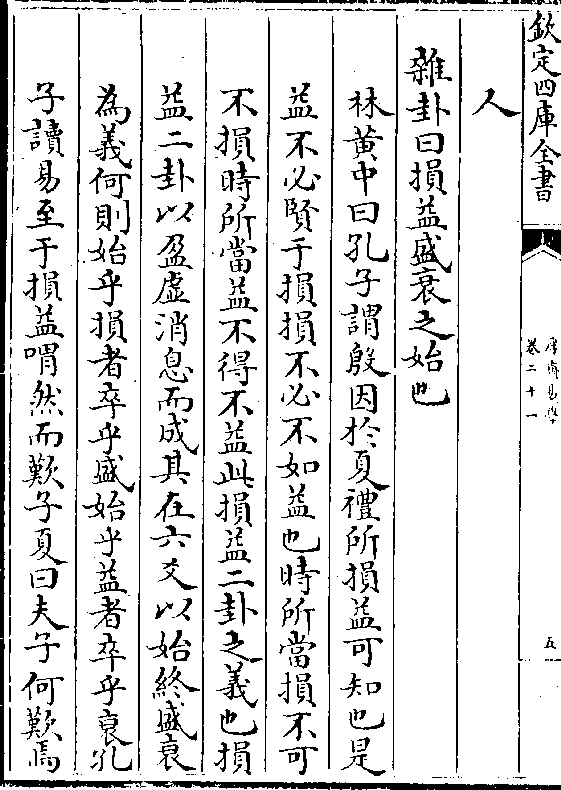 欽定四庫全書
厚齋易學
卷二十一
五
人
雜卦曰損益盛衰之始也
林黃中曰孔子謂殷因於夏禮所損益可知也是
益不必賢于損損不必不如益也時所當損不可
不損時所當益不得不益此損益二卦之義也損
益二卦以盈虛消息而成其在六爻以始終盛衰
為義何則始乎損者卒乎盛始乎益者卒乎衰孔
子讀易至于損益喟然而歎子夏曰夫子何歎焉